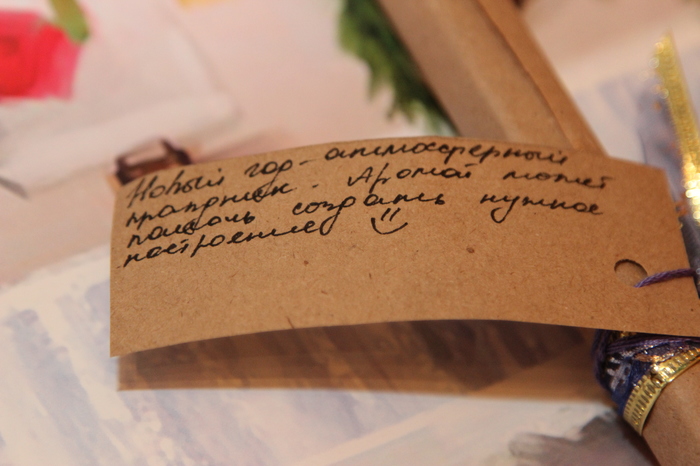 Новый год - атмосферный
праздник. Аромат может
помочь создать нужное
настроение